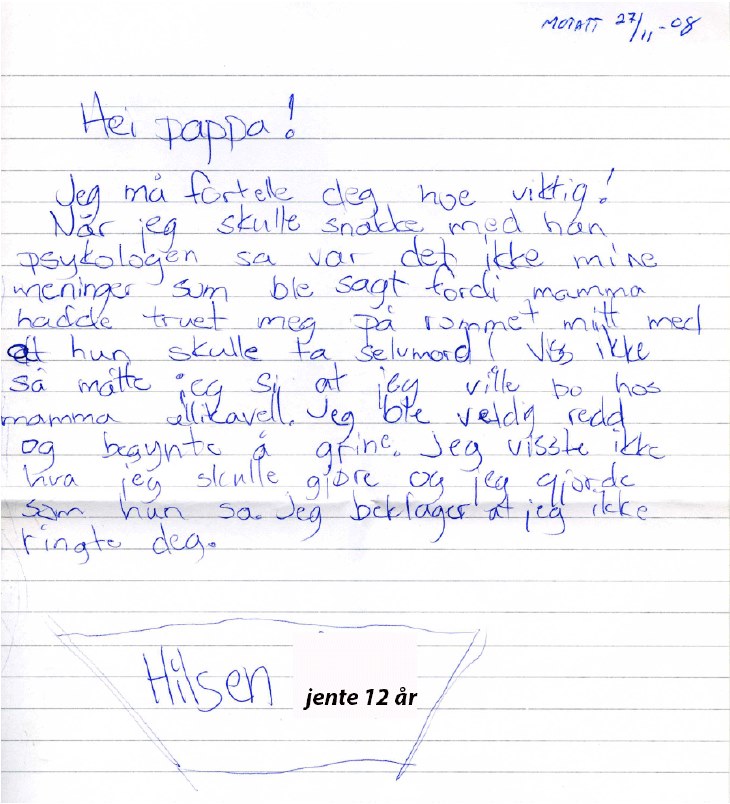 MOTATT 27/11-08
Hei pappa!
Jeg må fortelle deg noe viktig!
Når jeg skulle snakke med han
psykologen sa var det ikke mine
meninger som ble sagt fordi mamma
hadde truet meg på rommet mitt med
att hun skulle ta selvmord! Viss ikke
så måtte jeg si at jeg ville bo hos
mamma allikavell. Jeg ble veldig redd
og begynte å grine. Jeg visste ikke
hva jeg skulle gjøre og jeg gjorde
som hun sa. Jeg beklager at jeg ikke
ringte deg.
Hilsen jente 12 år